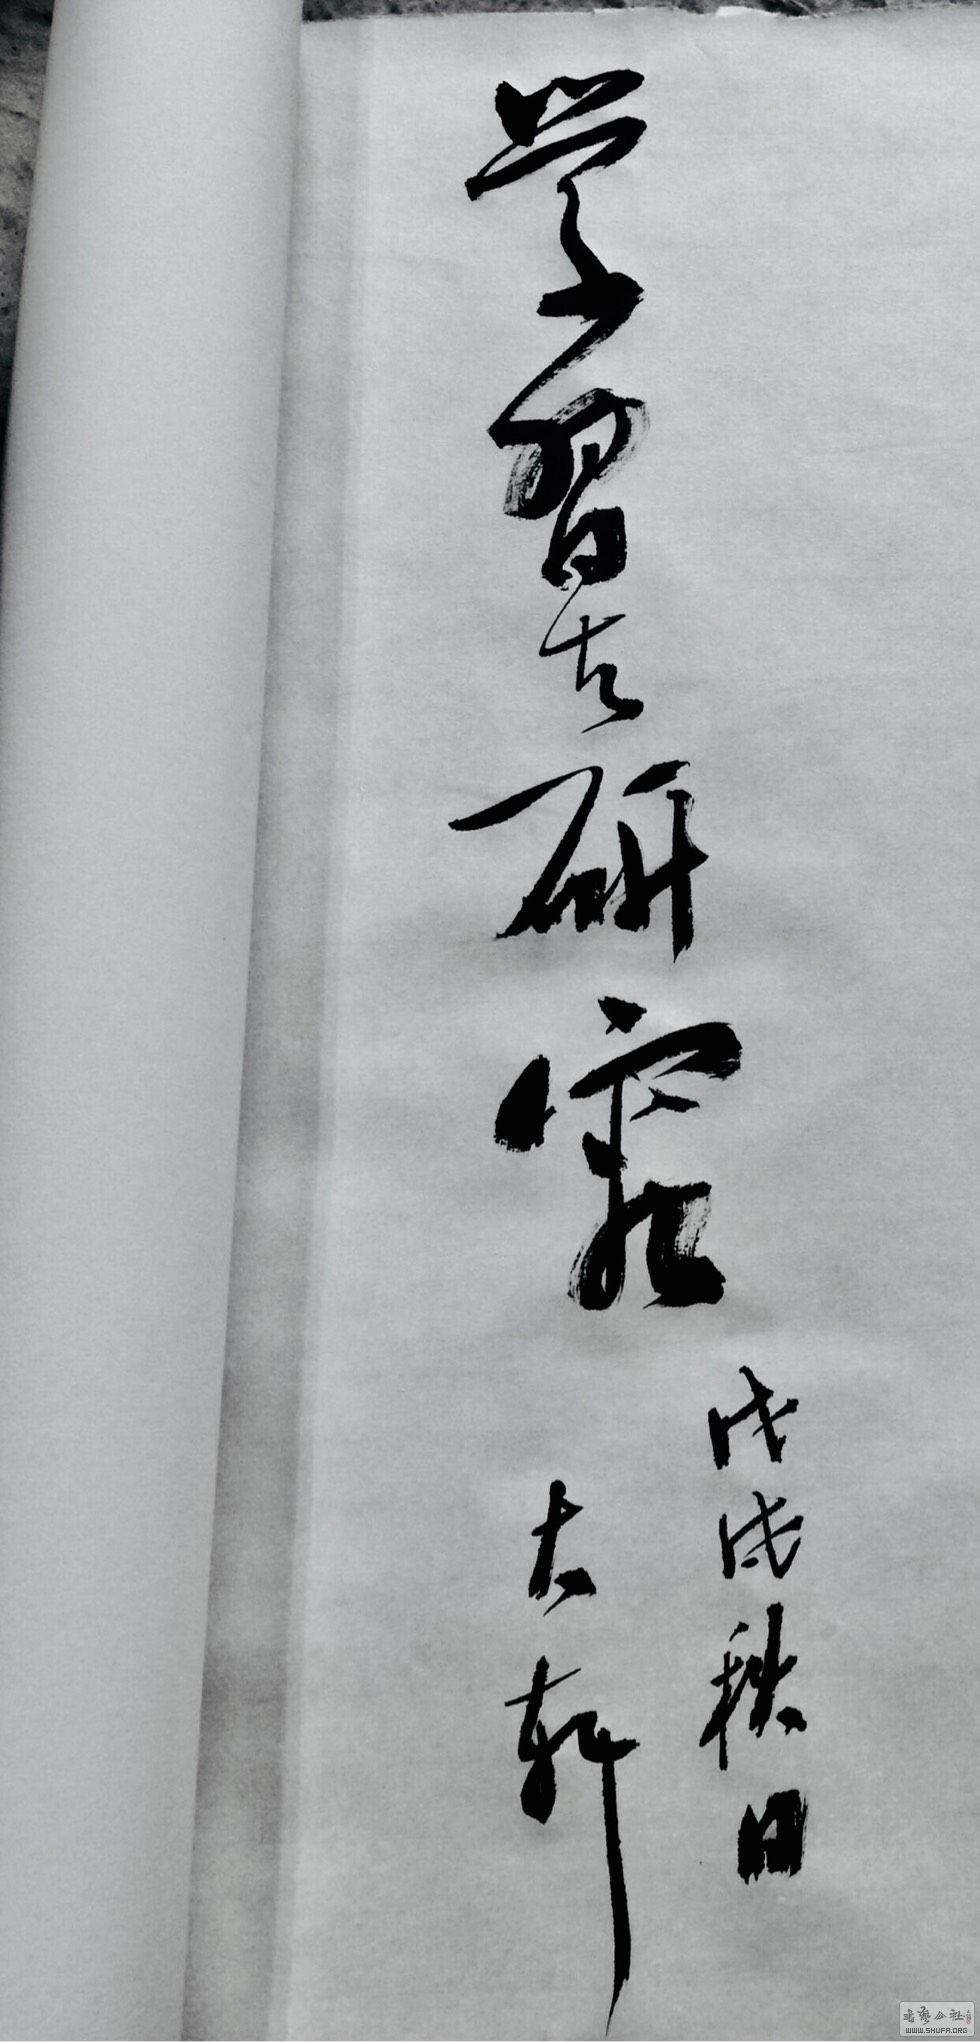 学習与研究
戊戌秋日
大轩
书艺公社
WWW.SHUFA.ORG